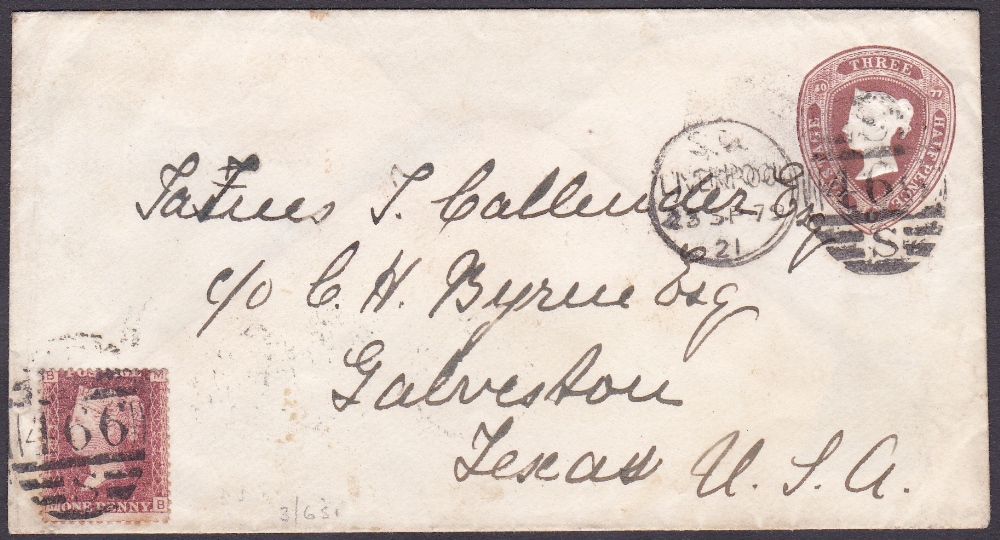 THREE
HALF PENCE
POSTAGE
LIVERPOOL
23 SP 79
21
S
James T. Callender Esq
c/o C. H. Byrne Esq
Galveston
Texas U. S. A.
B M
466
ONE PENNY
B
3/65